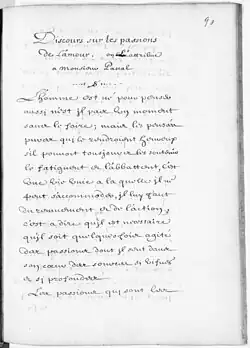 Discours sur les passions
de L'amour, on L'attribue
a Monsieur Pascal
L'homme est né pour penser
aussi n'est il pas un moment
sans le faire; mais les pensées
pures qui le rendroient heureux
s'il pouvoit tousjours les soutenir
le fatiguent et l'abbattent, c'est
une vie unie a la quelle il ne
peut s'accommoder, il luy faut
du remuement et de l'action,
c'est a dire qu'il est necessaire
qu'il soit quelquesfois agité
des passions dont il sent dans
son cœur des sources si vives
et si profondes
Les passions qui sont les